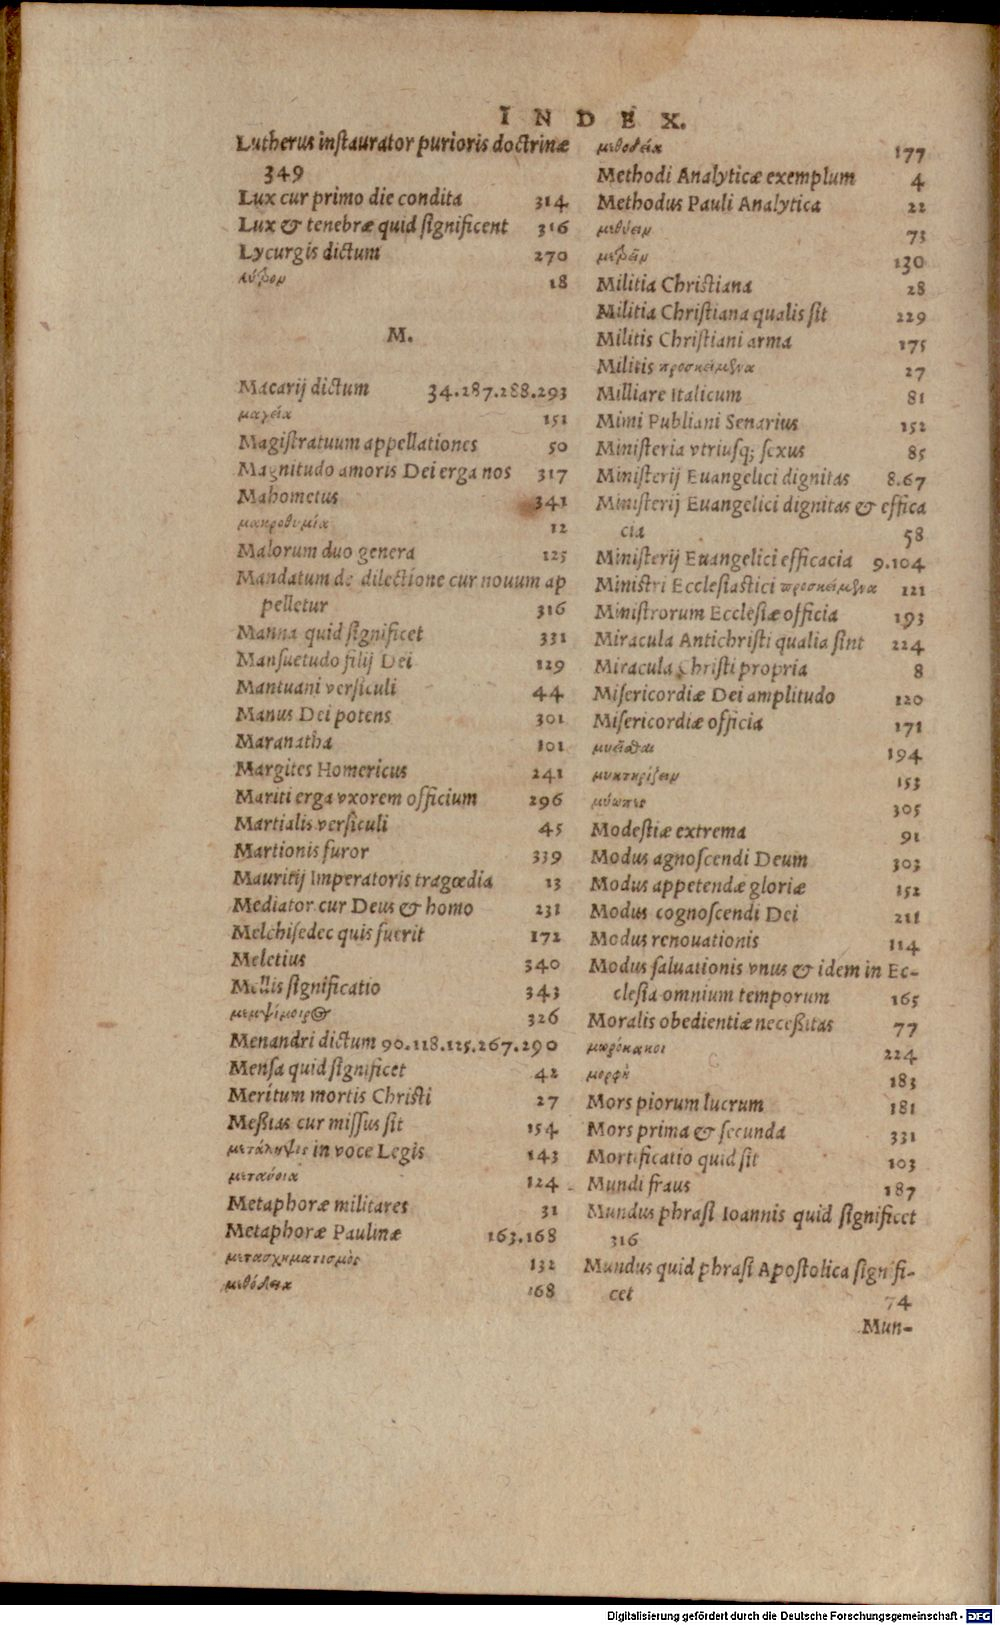 INDEX.
Lutherus inſtaurator purioris doctrinæ
349
Lux cur primo die condita 314
Lux & tenebræ quid ſignificent 316
Lycurgis dictum 270
18
M.
Macarij dictum 34.287.288.293
μαγεία 151
Magiſtratuum appellationes 50
Magnitudo amoris Dei erga nos 317
Mahometus 341
μακροθυμία 12
Malorum duo genera 125
Mandatum de dilectione cur nouum ap
pelletur 316
Manna quid ſignificet 331
Manſuetudo filij Dei 129
Mantuani verſiculi 44
Manus Dei potens 301
Maranatha 101
Margites Homericus 241
Mariti erga vxorem officium 296
Martialis verſiculi 45
Martionis furor 339
Mauritij Imperatoris tragœdia 13
Mediator cur Deus & homo 231
Melchiſedec quis fuerit 172
Meletius 340
Mellis ſignificatio 343
326
Menandri dictum 90.118.125.267.290
Menſa quid ſignificet 42
Meritum mortis Chriſti 27
Meßias cur miſſus ſit 154
μετάληψις in voce Legis 143
124
Metaphoræ militares 31
Metaphoræ Paulinæ 163.168
μετασχηματισμὸς 132
μεθόδεια 168
μεθοδεία 177
Methodi Analyticæ exemplum 4
Methodus Pauli Analytica 22
μεθύειν 73
130
Militia Chriſtiana 28
Militia Chriſtiana qualis ſit 229
Militis Chriſtiani arma 175
Militis προσκείμενα 27
Milliare Italicum 81
Mimi Publiani Senarius 152
Miniſteria vtriuſq; ſexus 85
Miniſterij Euangelici dignitas 8.67
Miniſterij Euangelici dignitas & effica
cia 58
Miniſterij Euangelici efficacia 9.104
Miniſtri Eccleſiaſtici προσκείμενα 121
Miniſtrorum Eccleſiæ officia 193
Miracula Antichriſti qualia ſint 224
Miracula Chriſti propria 8
Miſericordiæ Dei amplitudo 120
Miſericordiæ officia 171
194
μυκτηρίζειν 153
305
Modeſtiæ extrema 91
Modus agnoſcendi Deum 303
Modus appetendæ gloriæ 152
Modus cognoſcendi Dei 211
Modus renouationis 114
Modus ſaluationis vnus & idem in Ec-
cleſia omnium temporum 165
Moralis obedientiæ neceßitas 77
μωρόκακοι 224
μορφὴ 183
Mors piorum lucrum 181
Mors prima & ſecunda 331
Mortificatio quid ſit 103
Mundi fraus 187
Mundus phraſi Ioannis quid ſignificet
316
Mundus quid phraſi Apoſtolica ſignifi-
cet 74
Mun-
Digitalisierung gefördert durch die Deutsche Forschungsgemeinschaft - DFG